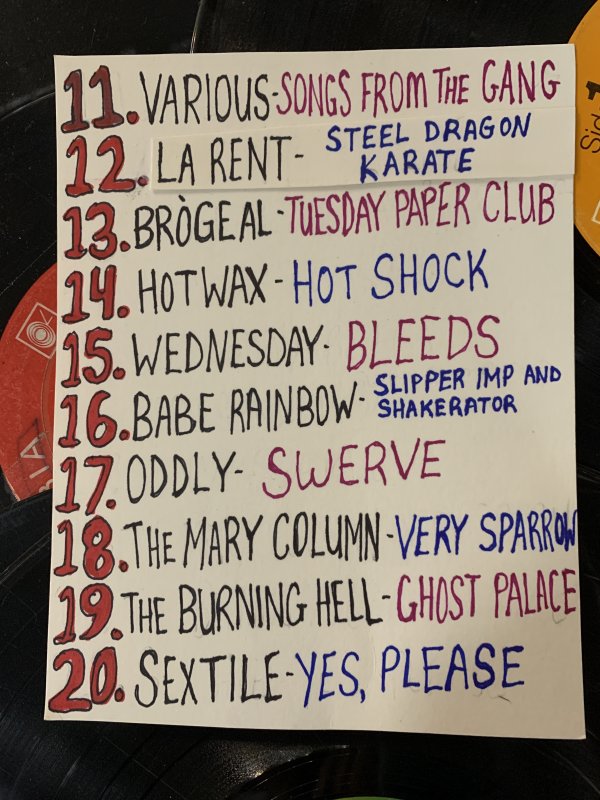 11. VARIOUS-SONGS FROM THE GANG
12. LA RENT- STEEL DRAGON
KARATE
13. BRÒGEAL-TUESDAY PAPER CLUB
14. HOTWAX-HOT SHOCK
15. WEDNESDAY- BLEEDS
16. BABE RAINBOW- SLIPPER IMP AND
SHAKERATOR
17. ODDLY- SWERVE
18. THE MARY COLUMN-VERY SPARROW
19. THE BURNING HELL-GHOST PALACE
20. SEXTILE-YES, PLEASE